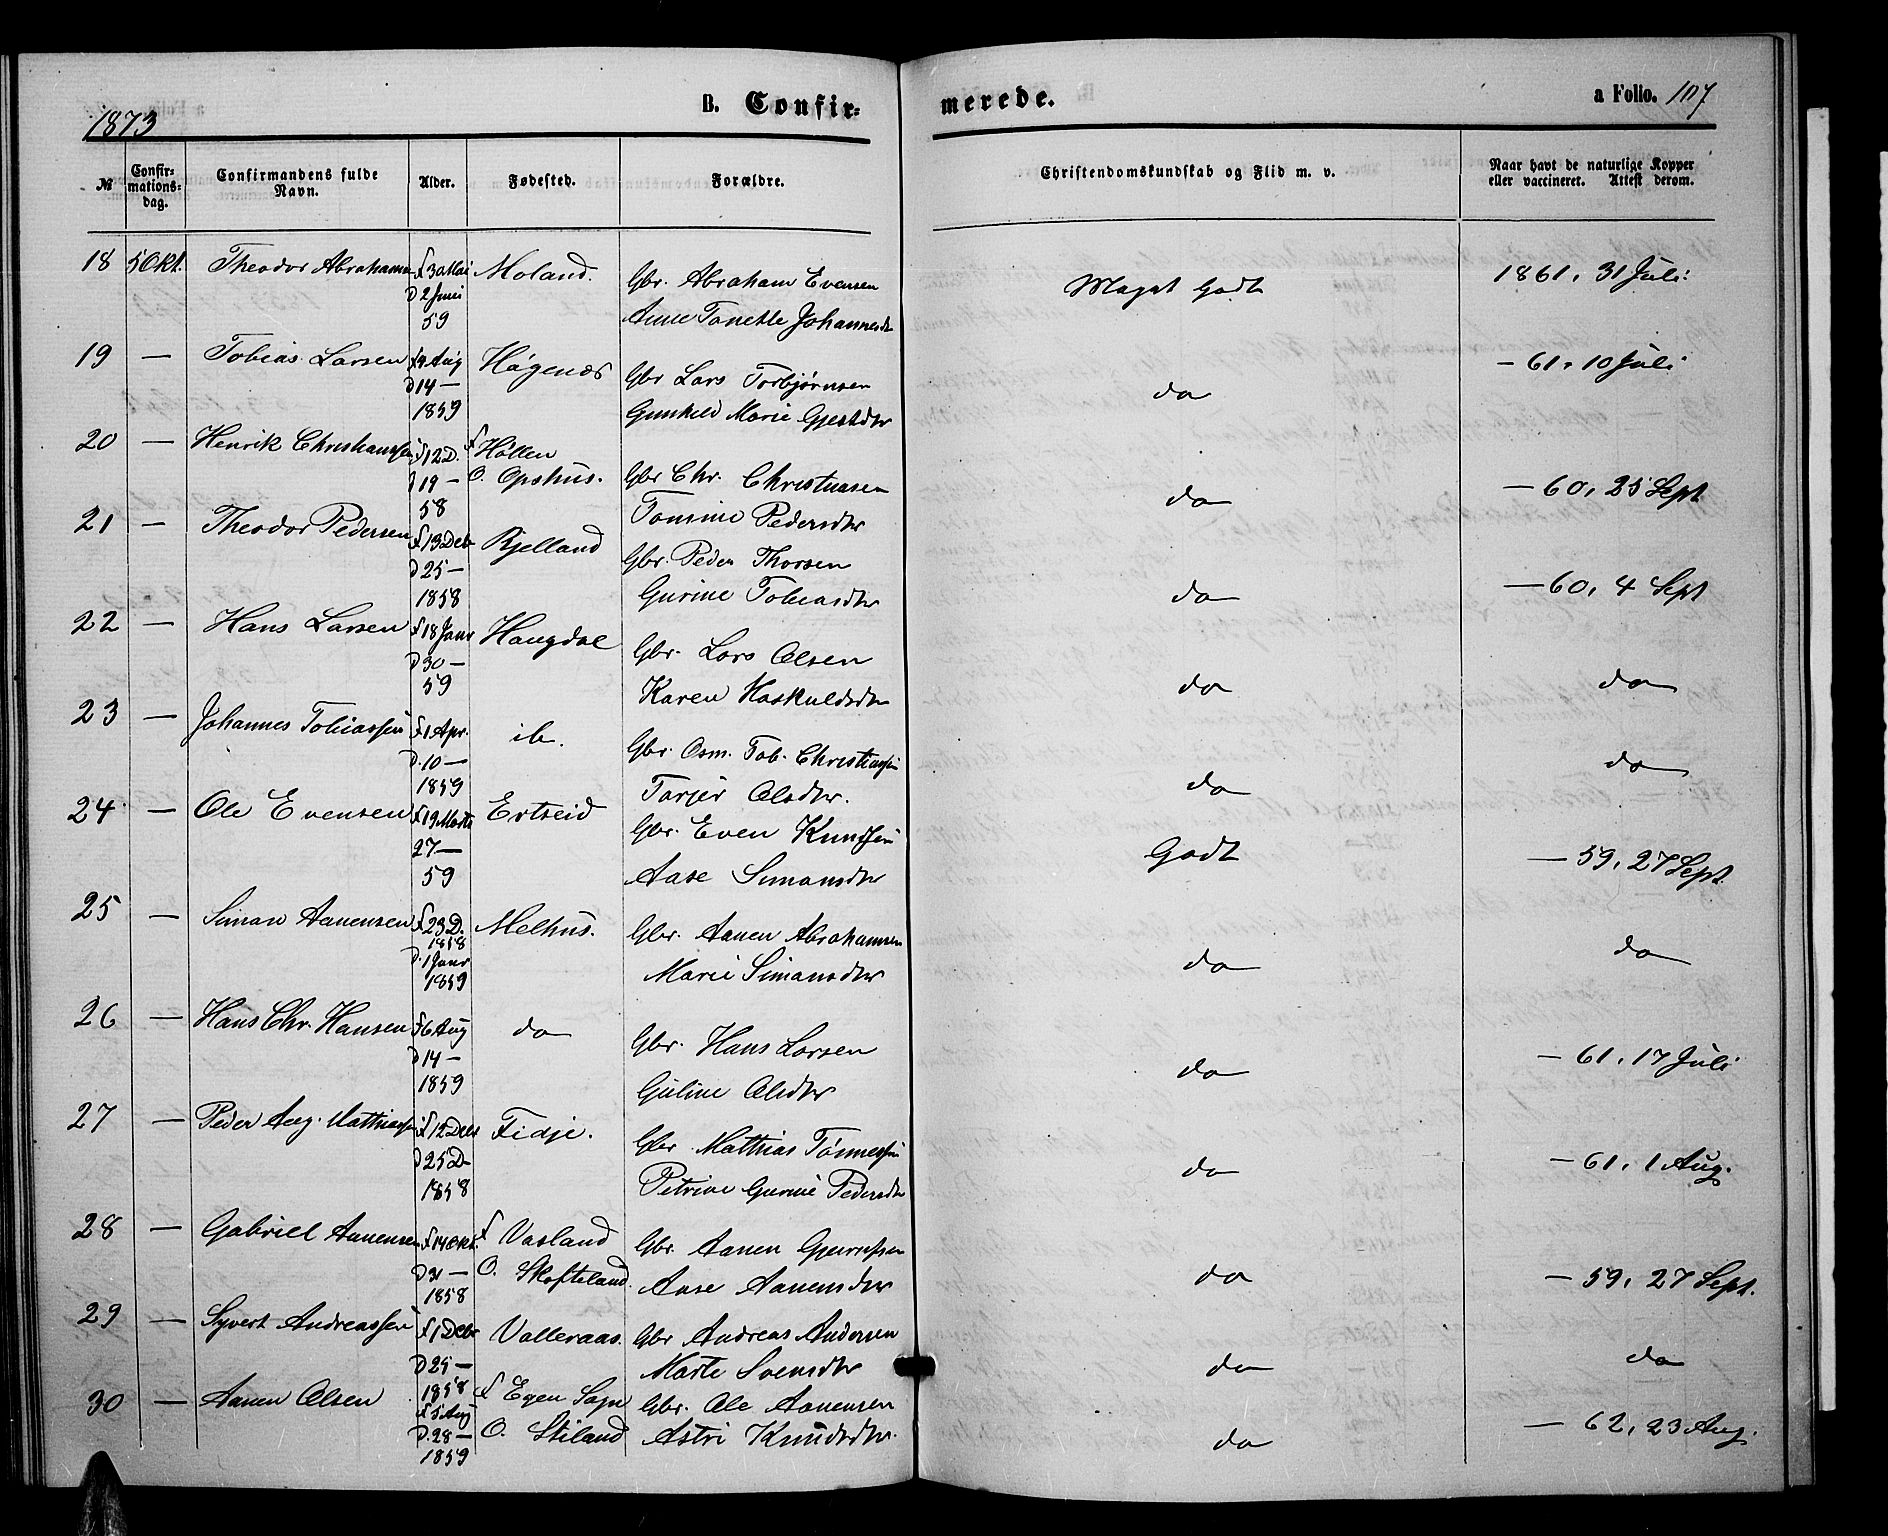 1873
B. Confir-
merede.
a Folio. 107
№
Confir-
mations-
dag.
Confirmandens fulde
Navn.
Alder.
Fødested.
Forældre.
Christendomskundskab og Flid m. v.
Naar havt de naturlige Kopper
eller vaccineret. Attest derom.
18 5 Okt. Theodor Abrahamsen f 30 Mai Moland. Gbr. Abraham Evensen Meget Godt 1861, 31 Juli
D 2 Juni Anne Tonette Johannesdtr
59
19 — Tobias Larsen f 9 Aug Høgenes Gbr Lars Torbjørnsen do — 61, 10 Juli
D 14 — Gunhild Marie Gjestdtr
1859
20 — Henrik Christianssen f 12 D. f Høllen Gbr Chr. Christiansen do — 60, 25 Sept
D 19 — O. Opshus. Tomine Pedersdtr
58
21 — Theodor Pedersen f 13 Debr Kjelland Gbr. Peder Thorsen do — 60, 4 Sept
D 25 — Gurine Tobiasdtr
1858
22 — Hans Larsen f 18 Janr Haugdal Gbr. Lars Olsen do do
D 30 — Karen Haskuldsdtr
59
23 — Johannes Tobiassen f 1 Apr. ib. Gbr. Osm. Tob. Christiansen do do
D. 10 — Torjer Olsdtr.
1859
24 — Ole Evensen f 19 Marts Ertseid Gbr. Even Knudsen Godt — 59, 27 Sept.
27 — Aase Simonsdtr
59
25 — Simon Aanensen f 23 D. Melhus. Gbr. Aanen Abrahamsen do do
1858
D. 1 Janr Marie Simonsdtr
1859
26 — Hans Chr. Hansen f 6 Aug do Gbr. Hans Larsen do — 61, 17 Juli
D 14 — Guline Olsdtr
1859
27 — Peder Aug. Mathiassen f 12 Debr Fidje. Gbr Mathias Tønnessen do — 61, 1 Aug.
D 25 D — Petrine Gurine Pedersdtr
1858
28 — Gabriel Aanensen f 14 Okt. f Vasland Gbr. Aanen do — 59, 27 Sept.
D 31 — O. Skofteland. Aase Aanensdtr
1858
29 — Syvert Andreassen f 1 Debr Valleraas. Gbr Andreas Andersen do do
D 25 — Marte Svensdtr
1858
30 — Aanen Olsen f 5 Aug f Egen Sogn Gbr. Ole Aanensen do — 62, 23 Aug.
D. 28 — O. Stiland Astri Knudsdtr.
1859